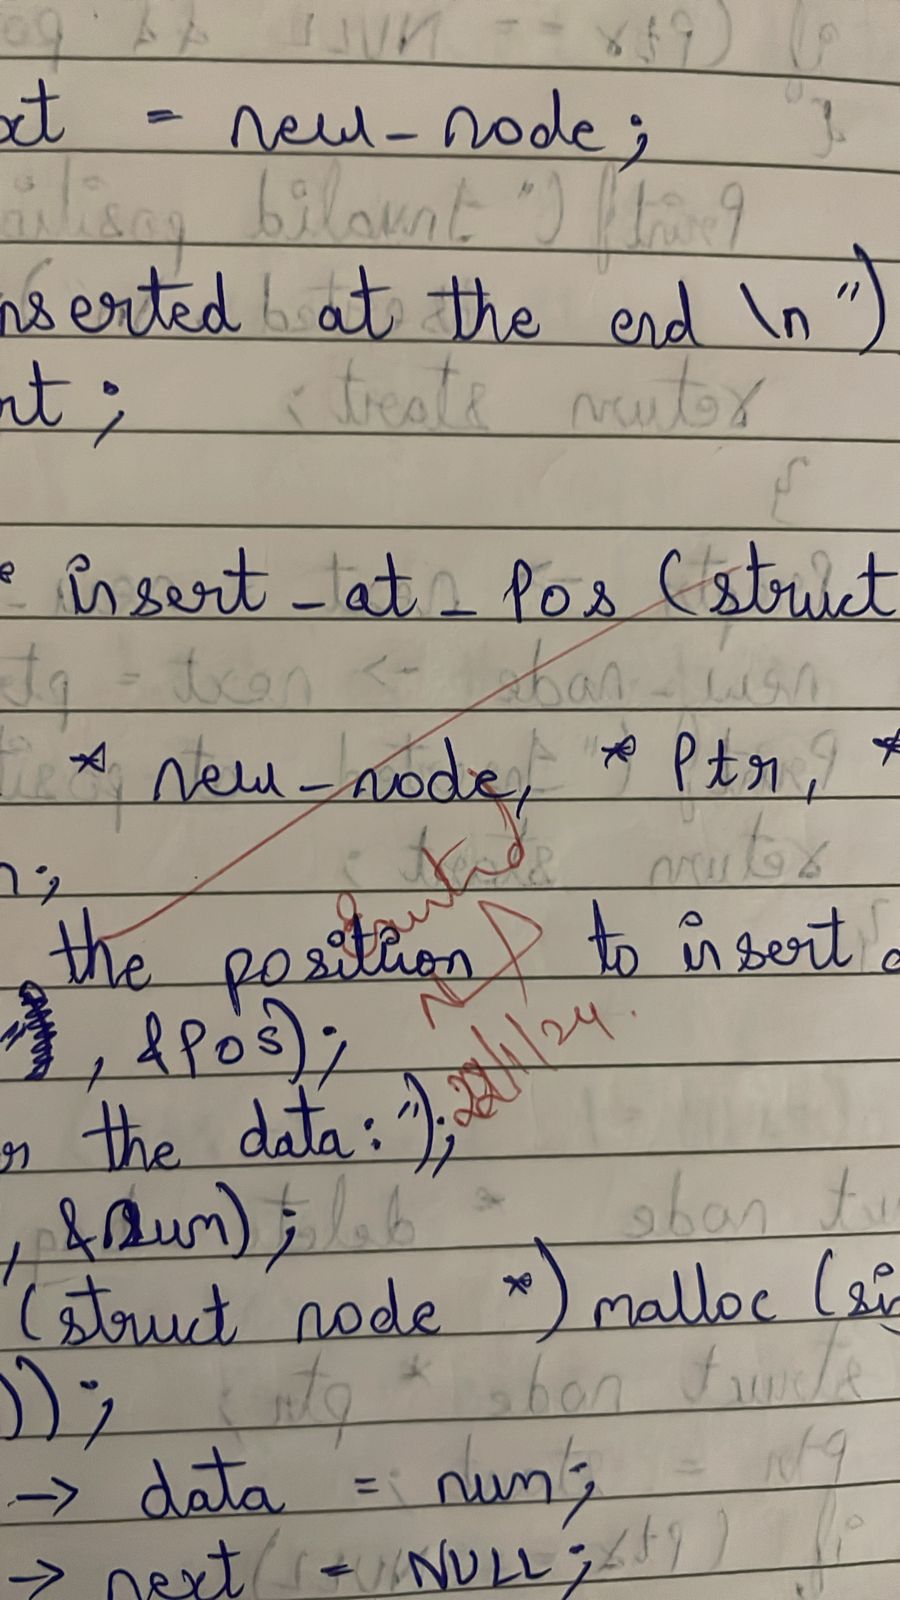 xt = new-node;
nserted at the end \n")
rt;
insert-at-Pos (struct
* new-node, * Ptr, *
n;
the position to insert
, &Pos);
the data:");
22/1/24.
, &num);
(struct node *) malloc (si
));
→ data = num;
→ next = NULL;